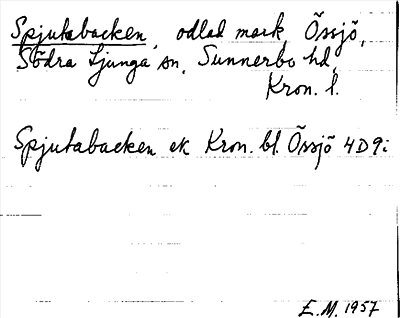 Spjutabacken, odlad mark Össjö,
Södra Ljunga sn, Sunnerbo hd,
Kron. l.
Spjutabacken ek Kron. bl. Össjö 4D9i
E.M. 1957